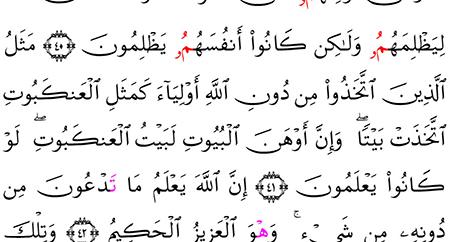 لِيَظْلِمَهُمُۥ وَلَٰكِن كَانُوٓا۟ أَنفُسَهُمُۥ يَظْلِمُونَ ۝٤٠ مَثَلُ
ٱلَّذِينَ ٱتَّخَذُوا۟ مِن دُونِ ٱللَّهِ أَوْلِيَآءَ كَمَثَلِ ٱلْعَنكَبُوتِ
ٱتَّخَذَتْ بَيْتًاۖ وَإِنَّ أَوْهَنَ ٱلْبُيُوتِ لَبَيْتُ ٱلْعَنكَبُوتِۖ لَوْ
كَانُوا۟ يَعْلَمُونَ ۝٤١ إِنَّ ٱللَّهَ يَعْلَمُ مَا تَدْعُونَ مِن
دُونِهِۦ مِن شَىْءٍۚ وَهْوَ ٱلْعَزِيزُ ٱلْحَكِيمُ ۝٤٢ وَتِلْكَ